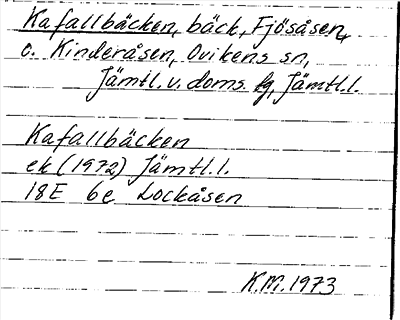 Kafallbäcken, bäck, Fjösåsen,
o. Kinderåsen, Ovikens sn,
Jämtl. v. doms. fg, Jämtl.l.
Kafallbäcken
ek (1972) Jämtl.l.
18E 6e Lockåsen
K.M. 1973